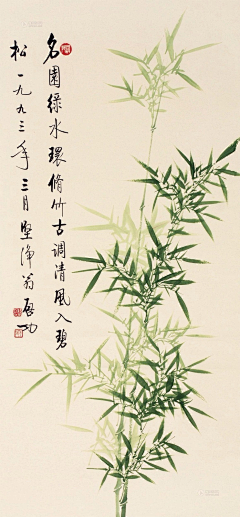 名園綠水環脩竹古调清風入碧
松一九九三年三月堅净翁启功